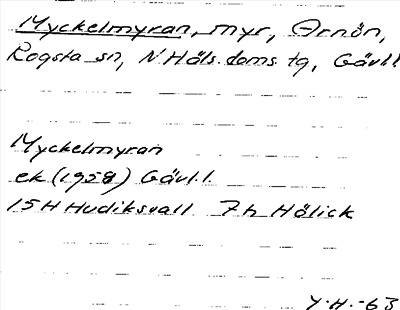 Myckelmyran, myr, Arnön,
Rogsta sn, N Häls. doms tg, Gävl.l
Myckelmyran
ek (1958) Gävl.l.
15H Hudiksvall 7h Hölick
Y.H.-63